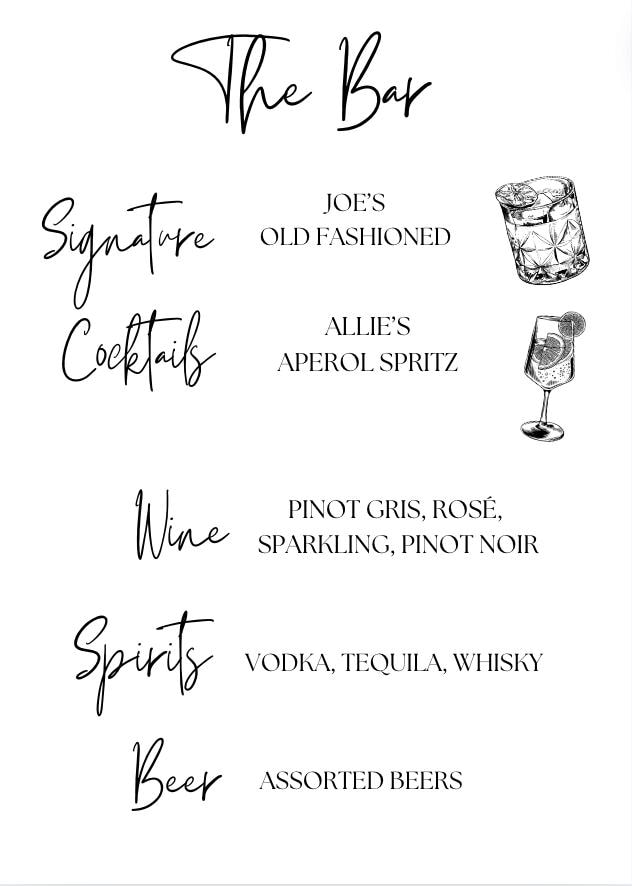 The Bar
Signature
Cocktails
JOE’S
OLD FASHIONED
ALLIE’S
APEROL SPRITZ
Wine
PINOT GRIS, ROSÉ,
SPARKLING, PINOT NOIR
Spirits
VODKA, TEQUILA, WHISKY
Beer
ASSORTED BEERS